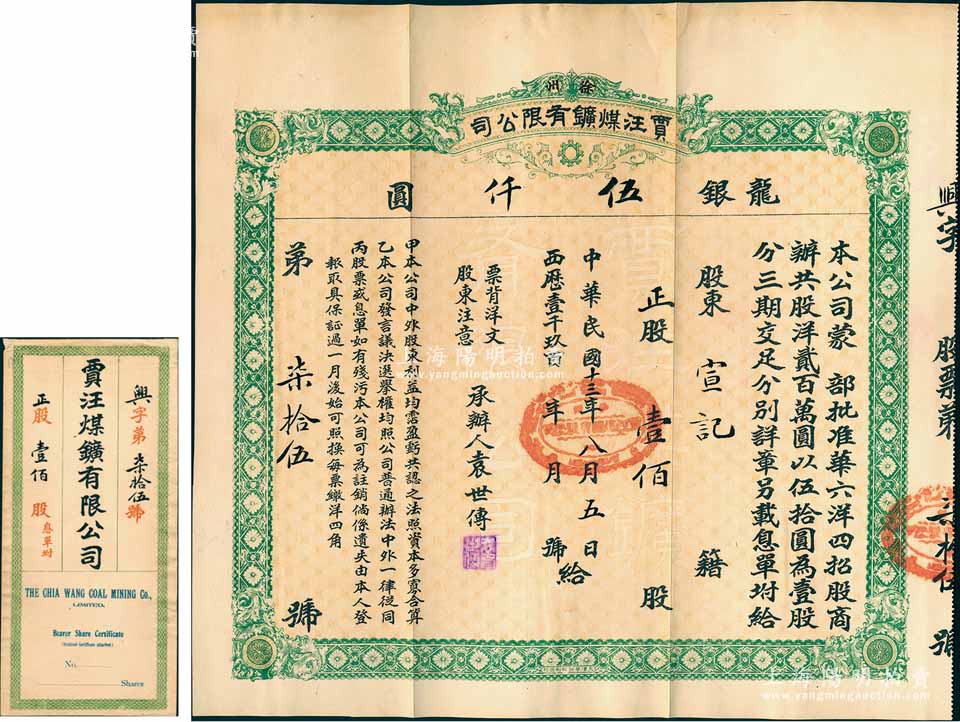 徐州
賈汪煤鑛有限公司
龍銀伍仟圓
本公司蒙 部批准華六洋四招股商
辦共股洋貳百萬圓以伍拾圓為壹股
分三期交足分別詳章另載息單坿給
股東 宣記 籍
正股 壹佰 股
中華民國十三年八月五日給
西歷壹千玖百 年 月 號
票背洋文
股東注意
承辦人袁世傳
甲本公司中外股東利益均霑盈虧共認之法照資本多寡合算
乙本公司發言議決選舉權均照公司普通辦法中外一律從同
丙股票或息單如有殘污本公司可為註銷倘係遺失由本人登
報取具保証過一月後始可照換每票繳洋四角
第 柒拾伍 號
興字 股票第 柒拾伍 號
興字第 柒拾伍號
賈汪煤鑛有限公司
正股 壹佰 股 息單坿
THE CHIA WANG COAL MINING Co.,
LIMITED.
Bearer Share Certificate
No.
Shares
上海陽明拍賣
www.yangmingauction.com
上海陽明拍賣
www.yangmingauction.com